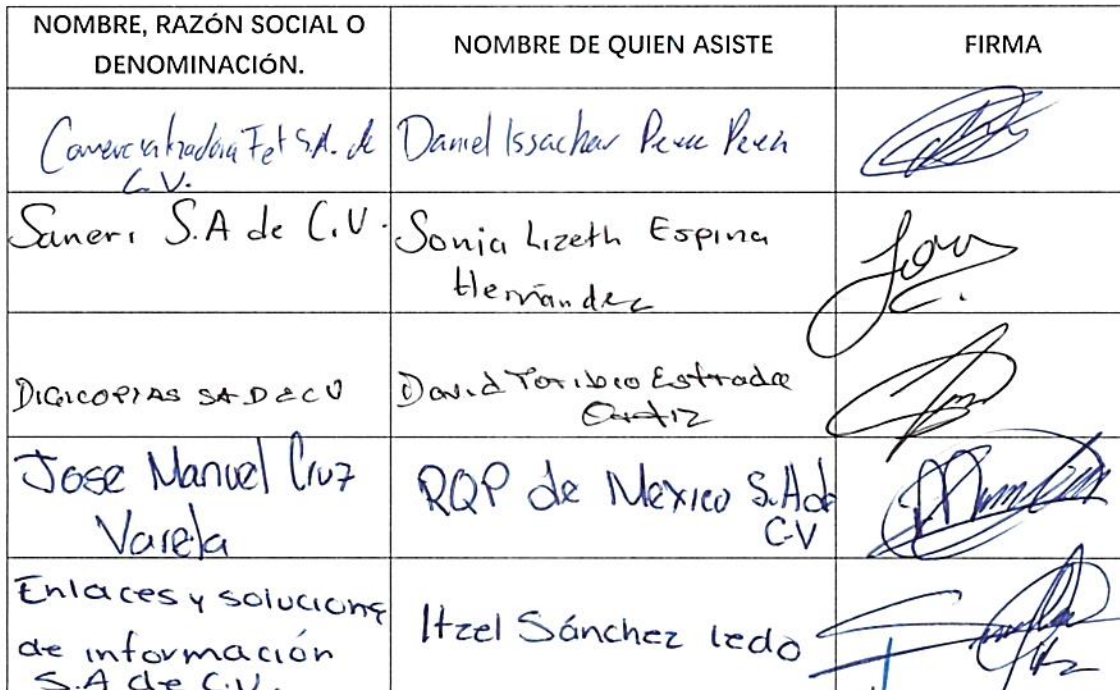 NOMBRE, RAZÓN SOCIAL O
DENOMINACIÓN.
NOMBRE DE QUIEN ASISTE
FIRMA
Comercializadora Fet S.A. de
C.V.
Daniel Issachar Perez Perez
Saneri S.A de C.V.
Sonia Lizeth Espina
Hernández
DIGICOPIAS SA DE CV
David Toribio Estrada
Ortiz
Jose Manuel Cruz
Varela
RQP de Mexico S.A de
C.V
Enlaces y soluciones
de información
S.A de C.V.
Itzel Sánchez Ledo